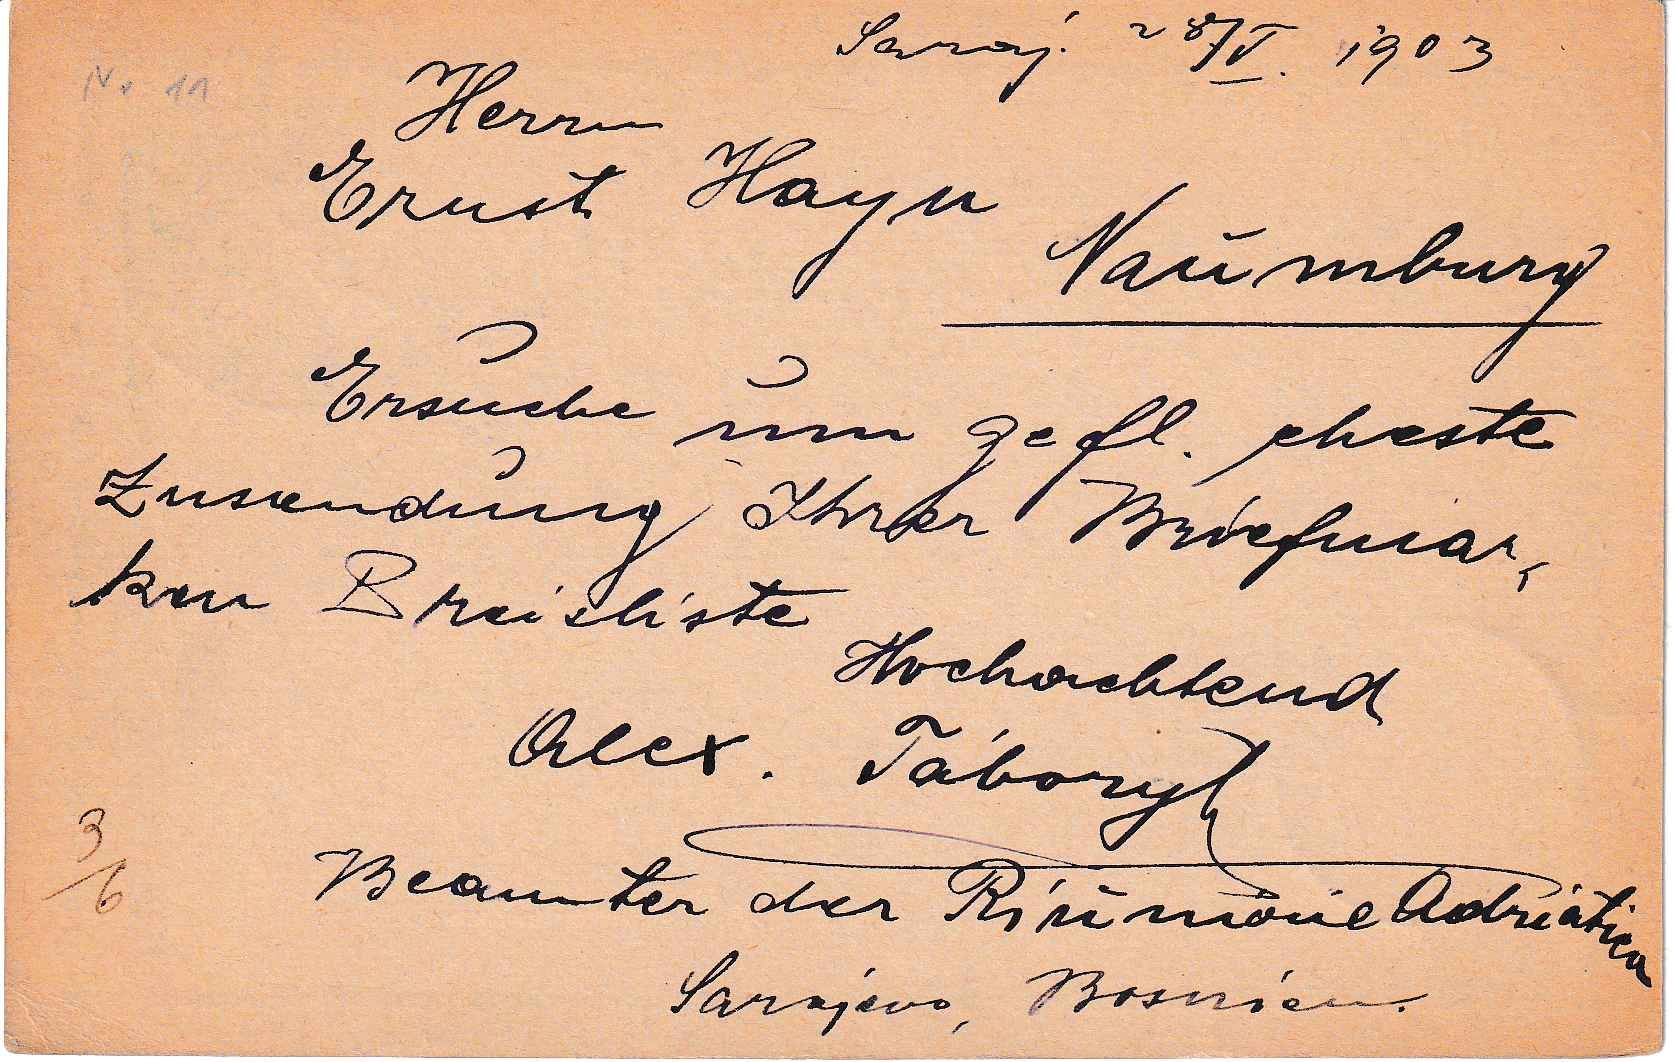 Saraj. 28/V. 1903
No 11
Herrn
Ernst Hayn
Naumburg
Ersuche um gefl. eheste
Zusendung Ihrer Briefmar-
ken Preisliste
Hochachtend
Alex. Táboryi
3/6
Beamter der Riunione Adriatica
Sarajevo, Bosnien.